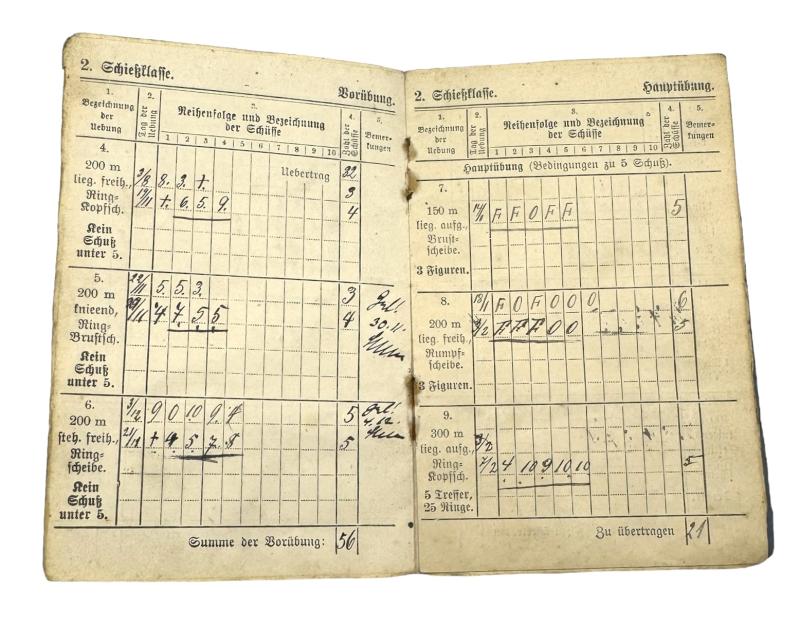 2. Schießklasse.
Vorübung.
1.
Bezeichnung
der
Uebung
2.
Tag der
Uebung
3.
Reihenfolge und Bezeichnung
der Schüsse
1 2 3 4 5 6 7 8 9 10
4.
Zahl der
Schüsse
5.
Bemer-
kungen
4.
200 m
lieg. freih.,
Ring-
Kopfsch.
Kein
Schuß
unter 5.
Uebertrag 32
8. 3. +. 3
+ 6. 5 9. 4
5.
200 m
knieend,
Ring-
Brustsch.
Kein
Schuß
unter 5.
22/11 5. 5 3. 3
4 7. 5 5 4
30. 11.
6.
200 m
steh. freih.,
Ring-
scheibe.
Kein
Schuß
unter 5.
3/12 9 0 10 9 5
+ 4 5 7 8 5
4. 12.
Summe der Vorübung: 56
2. Schießklasse.
Hauptübung.
1.
Bezeichnung
der Uebung
2.
Tag der
Uebung
3.
Reihenfolge und Bezeichnung
der Schüsse
1 2 3 4 5 6 7 8 9 10
4.
Zahl der
Schüsse
5.
Bemer-
kungen
Hauptübung (Bedingungen zu 5 Schuß).
7.
150 m
lieg. aufg.,
Brust-
scheibe.
3 Figuren.
F F O F F 5
8.
200 m
lieg. freih.,
Rumpf-
scheibe.
3 Figuren.
18/11 F O F O O O 6
F F F O O 5
9.
300 m
lieg. aufg.,
Ring-
Kopfsch.
5 Treffer,
25 Ringe.
7/2 4 10 9 10 10 5
Zu übertragen 21